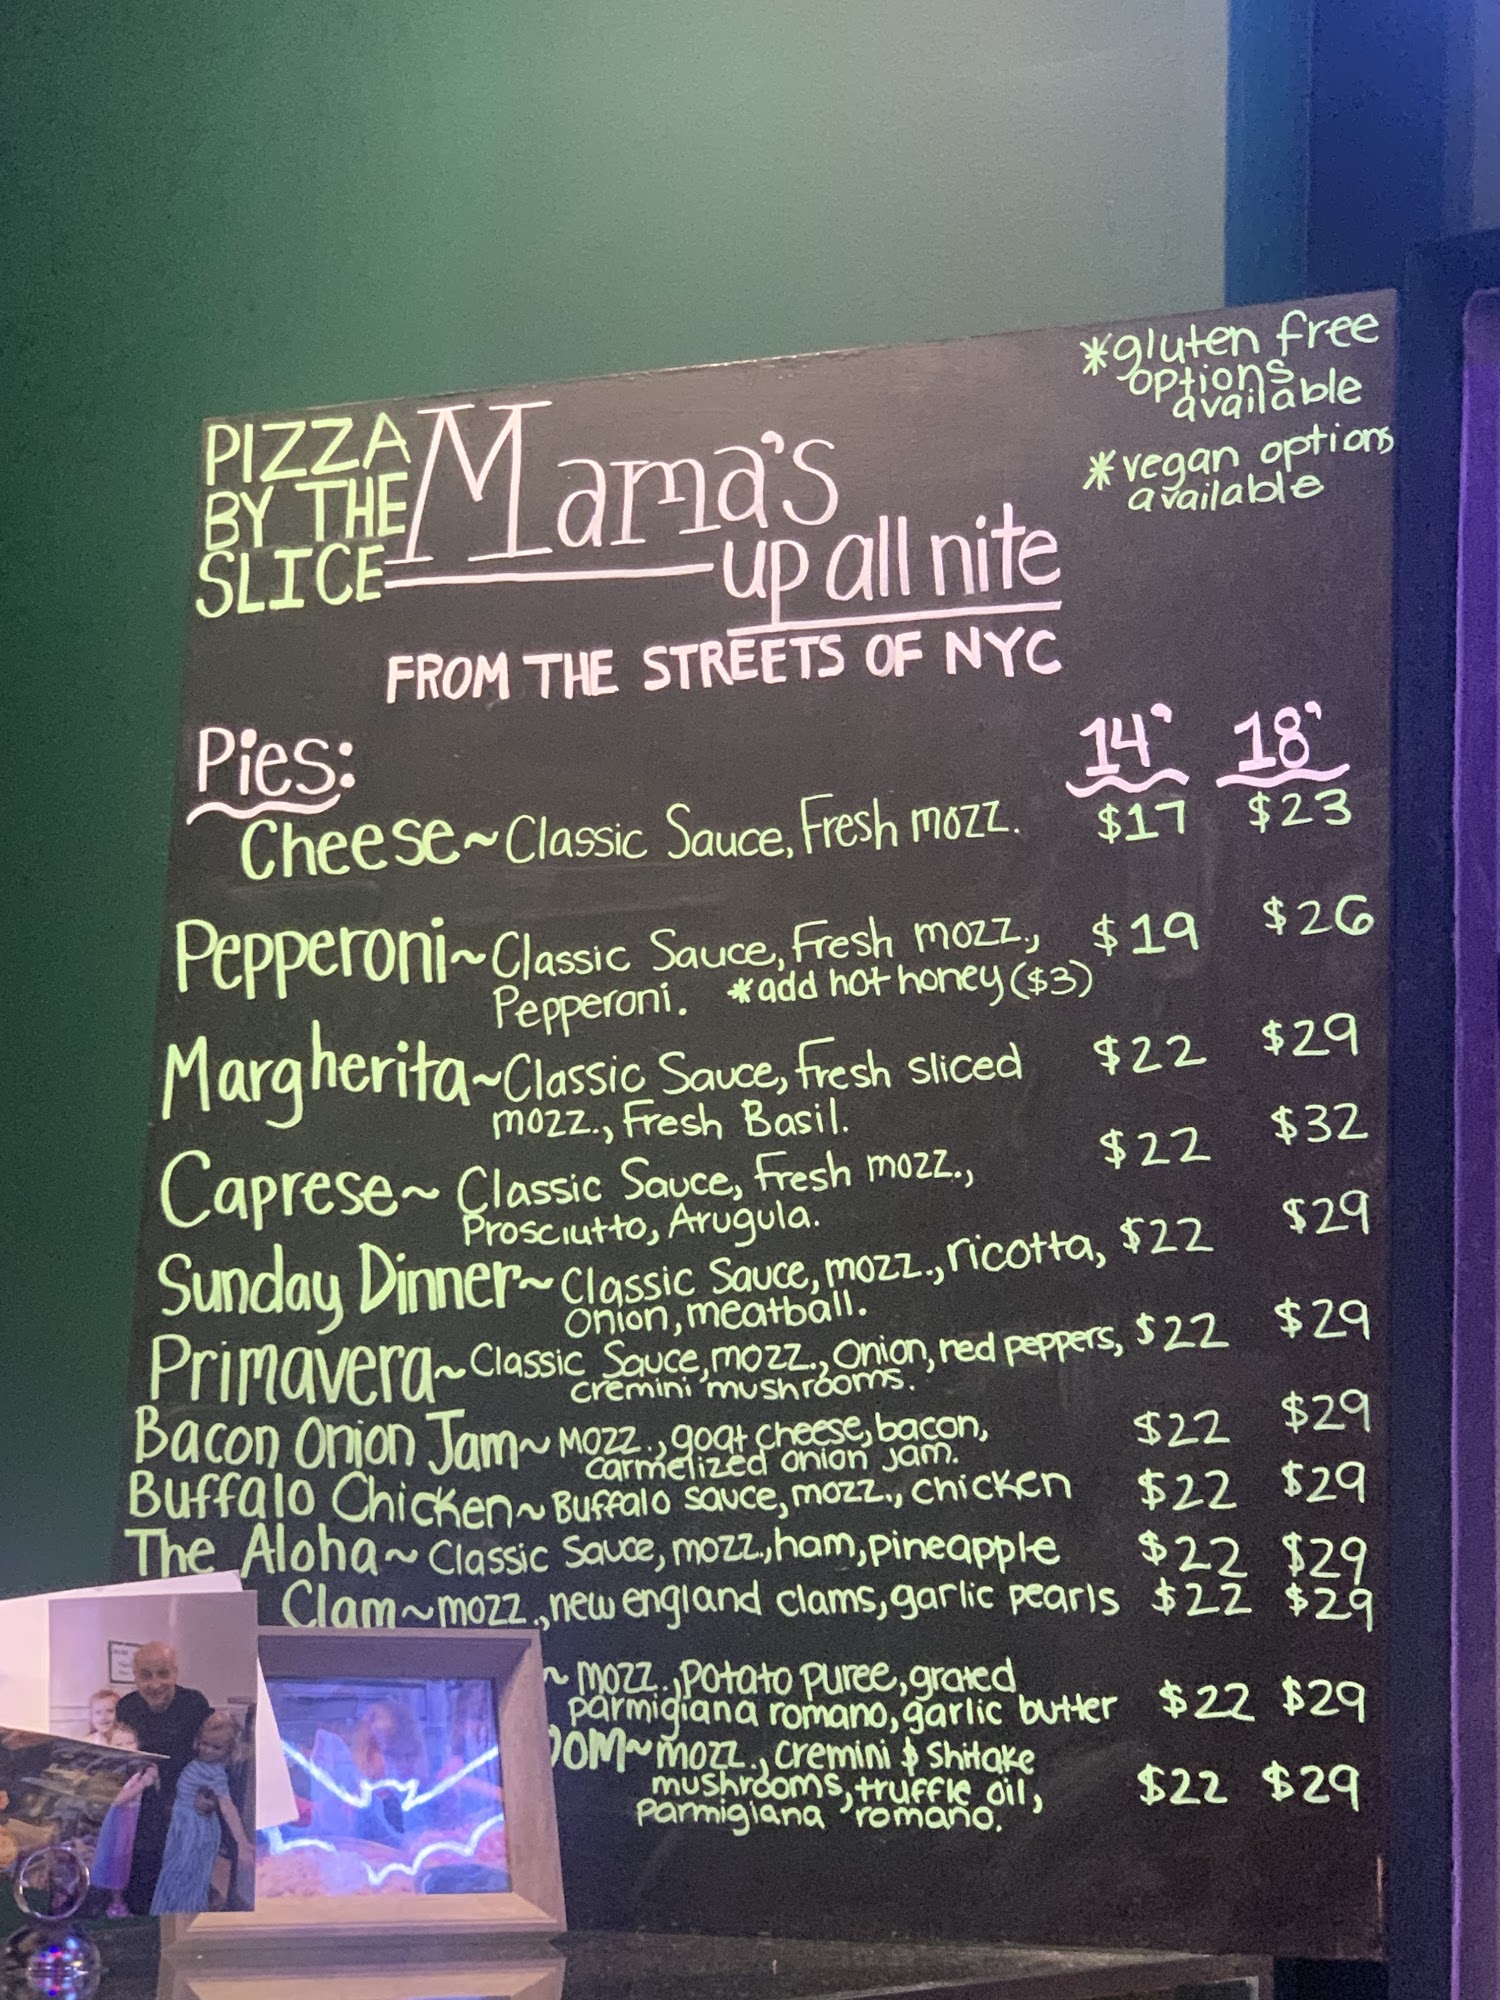 *gluten free
options
available
*vegan options
available
PIZZA
BY THE
SLICE
Mama's
up all nite
FROM THE STREETS OF NYC
Pies: 14' 18'
Cheese~Classic Sauce, Fresh mozz. $17 $23
Pepperoni~Classic Sauce, Fresh mozz., $19 $26
Pepperoni. *add hot honey ($3)
Margherita~Classic Sauce, Fresh sliced $22 $29
mozz., Fresh Basil.
Caprese~ Classic Sauce, Fresh mozz., $22 $32
Prosciutto, Arugula.
Sunday Dinner~Classic Sauce, mozz., ricotta, $22 $29
Onion, meatball.
Primavera~Classic Sauce, mozz., Onion, red peppers, $22 $29
cremini mushrooms.
Bacon Onion Jam~Mozz., goat cheese, bacon, $22 $29
carmelized onion jam.
Buffalo Chicken~Buffalo sauce, mozz., chicken $22 $29
The Aloha~Classic Sauce, mozz., ham, pineapple $22 $29
Clam~mozz., new england clams, garlic pearls $22 $29
~ mozz., potato puree, grated
parmigiana romano, garlic butter $22 $29
OOM~mozz., cremini & shitake
mushrooms, truffle oil, $22 $29
parmigiana romano.